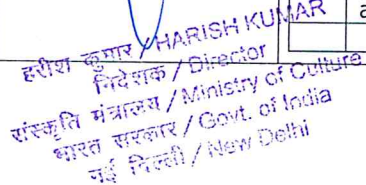 हरीश कुमार / HARISH KUMAR
निदेशक / Director
संस्कृति मंत्रालय / Ministry of Culture
भारत सरकार / Govt. of India
नई दिल्ली / New Delhi